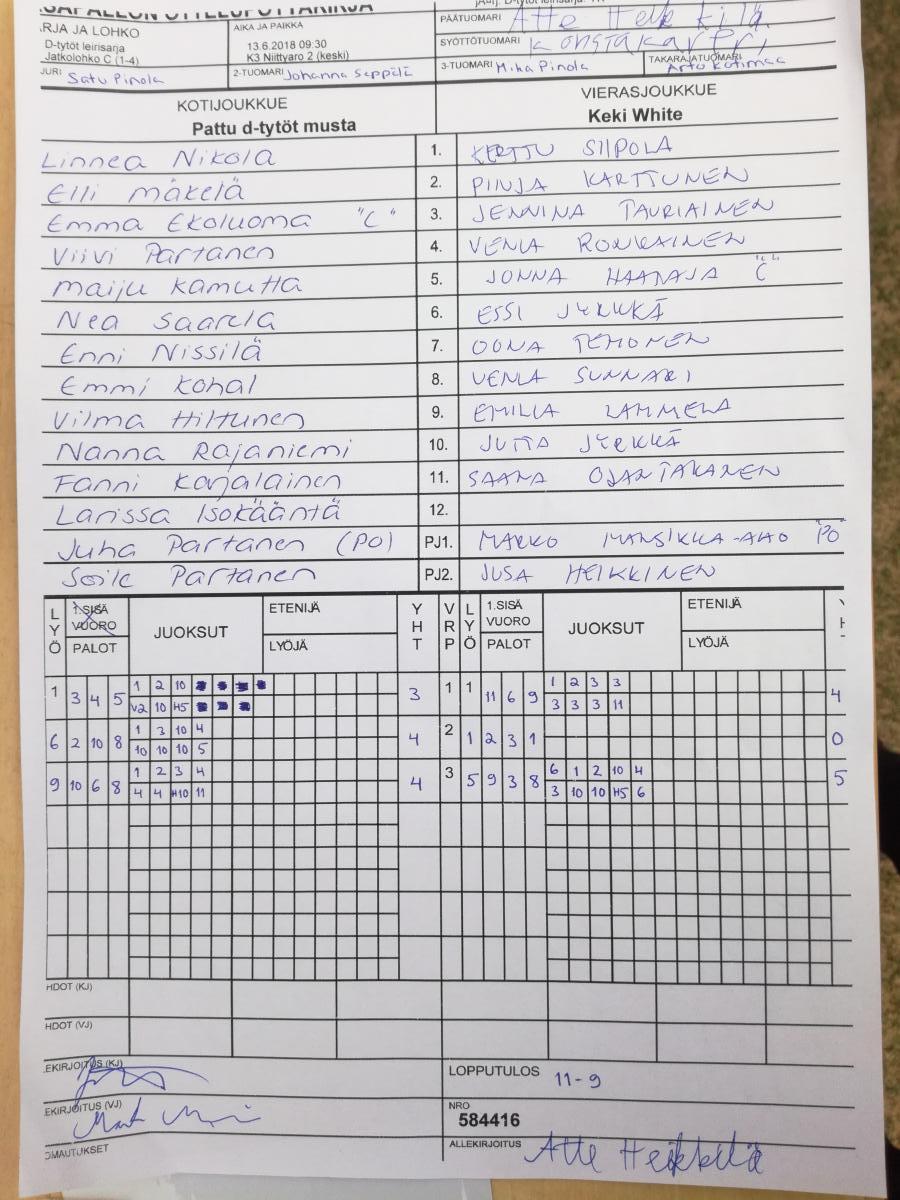 ARJA JA LOHKO
D-tytöt leirisarja
Jatkolohko C (1-4)
AIKA JA PAIKKA
13.6.2018 09:30
K3 Niittyaro 2 (keski)
PÄÄTUOMARI Atte Heikkilä
SYÖTTÖTUOMARI
JURI: Satu Pinola
2-TUOMARI Johanna Seppälä
3-TUOMARI Miha Pinola
TAKARAJATUOMARI Arto Kotimaa
KOTIJOUKKUE
Pattu d-tytöt musta
VIERASJOUKKUE
Keki White
Linnea Nikola 1. KERTTU SIIPOLA
Elli Mäkelä 2. PINJA KARTTUNEN
Emma Ekoluoma "C" 3. JENNINA TAURIAINEN
Viivi Partanen 4. VENLA RONKAINEN
Maiju Kamutta 5. JONNA HAATAJA "C"
Nea Saarela 6. ESSI JYRKKÄ
Enni Nissilä 7. OONA TEHONEN
Emmi Kohal 8. VENLA SUNNARI
Vilma Hiltunen 9. EMILIA LAMMELA
Nanna Rajaniemi 10. JUTTA JYRKKÄ
Fanni Karjalainen 11. SAANA OJANTAKANEN
Larissa Isokääntä 12.
Juha Partanen (PO) PJ1. MARKO MANSIKKA-AHO "PO"
Soile Partanen PJ2. JUSA HEIKKINEN
LYÖ 1.SISÄ VUORO PALOT JUOKSUT ETENIJÄ LYÖJÄ YHT VRP LYÖ 1.SISÄ VUORO PALOT JUOKSUT ETENIJÄ LYÖJÄ
1 3 4 5 1 2 10 3 1 1 11 6 9 1 2 3 3 4
V2 10 H5 3 3 3 11
6 2 10 8 1 3 10 4 4 2 1 2 3 1 0
10 10 10 5
9 10 6 8 1 2 3 4 4 3 5 9 3 8 6 1 2 10 4 5
4 4 H10 11 3 10 10 H5 6
HDOT (KJ)
HDOT (VJ)
EKIRJOITUS (KJ)
LOPPUTULOS 11-9
EKIRJOITUS (VJ)
NRO
584416
OMAUTUKSET
ALLEKIRJOITUS Atte Heikkilä